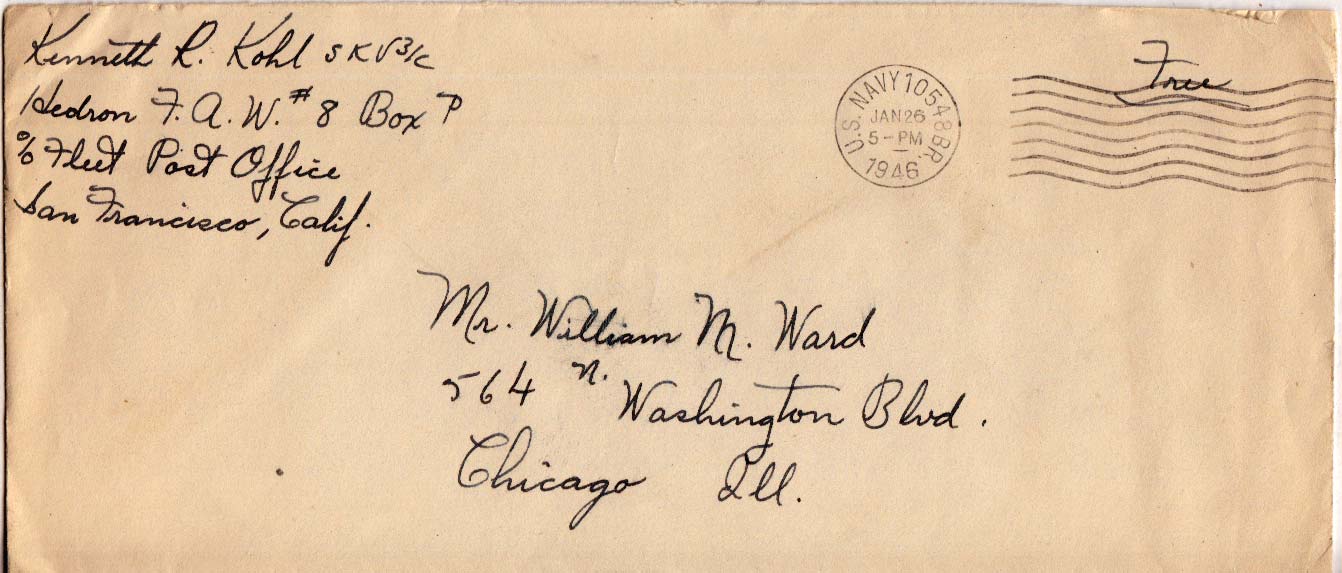 Kenneth R. Kohl SKV3/c
Hedron F.A.W. #8 Box P
c/o Fleet Post Office
San Francisco, Calif.
U.S. NAVY 10548 BR.
JAN 26
5-PM
1946
Free
Mr. William M. Ward
564 N. Washington Blvd.
Chicago Ill.